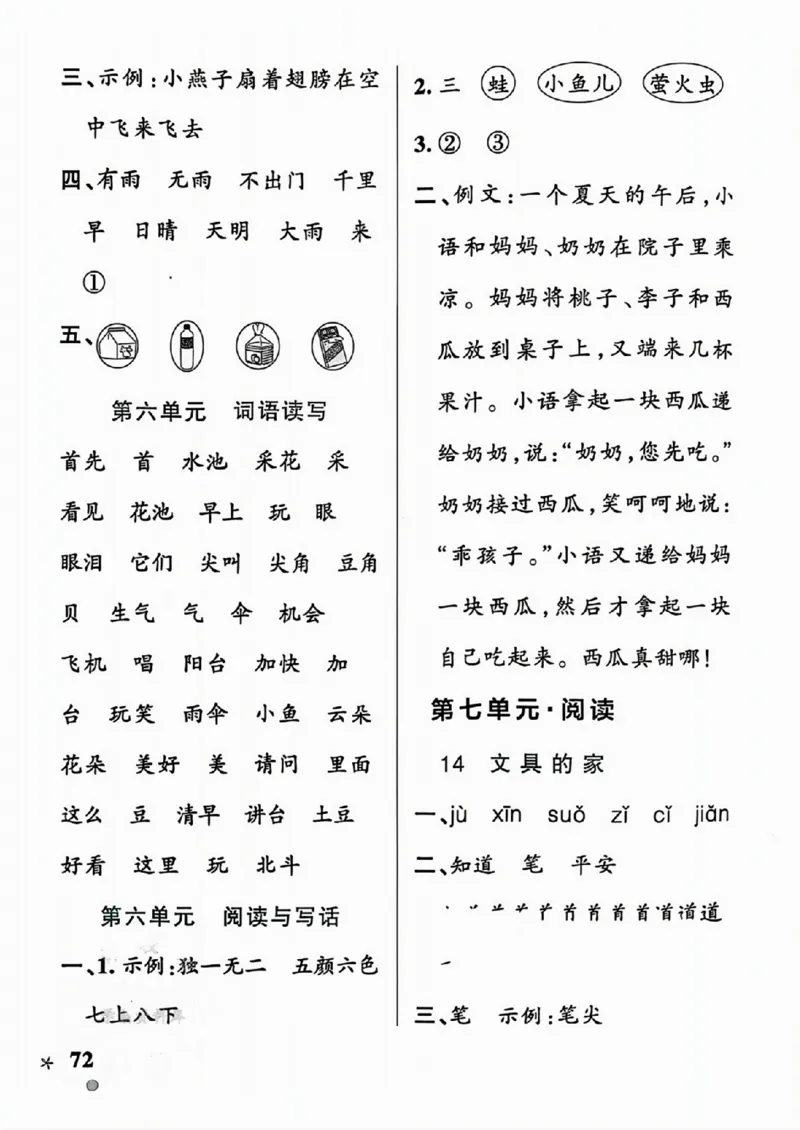 三、示例:小燕子扇着翅膀在空
中飞来飞去
四、有雨 无雨 不出门 千里
早 日晴 天明 大雨 来
①
五、
第六单元 词语读写
首先 首 水池 采花 采
看见 花池 早上 玩 眼
眼泪 它们 尖叫 尖角 豆角
贝 生气 气 伞 机会
飞机 唱 阳台 加快 加
台 玩笑 雨伞 小鱼 云朵
花朵 美好 美 请问 里面
这么 豆 清早 讲台 土豆
好看 这里 玩 北斗
第六单元 阅读与写话
一、1. 示例:独一无二 五颜六色
七上八下
72
2. 三 蛙 小鱼儿 萤火虫
3. ② ③
二、例文:一个夏天的午后,小
语和妈妈、奶奶在院子里乘
凉。妈妈将桃子、李子和西
瓜放到桌子上,又端来几杯
果汁。小语拿起一块西瓜递
给奶奶,说:“奶奶,您先吃。”
奶奶接过西瓜,笑呵呵地说:
“乖孩子。”小语又递给妈妈
一块西瓜,然后才拿起一块
自己吃起来。西瓜真甜哪!
第七单元·阅读
14 文具的家
一、jù xīn suǒ zǐ cǐ jiǎn
二、知道 笔 平安
三、笔 示例:笔尖